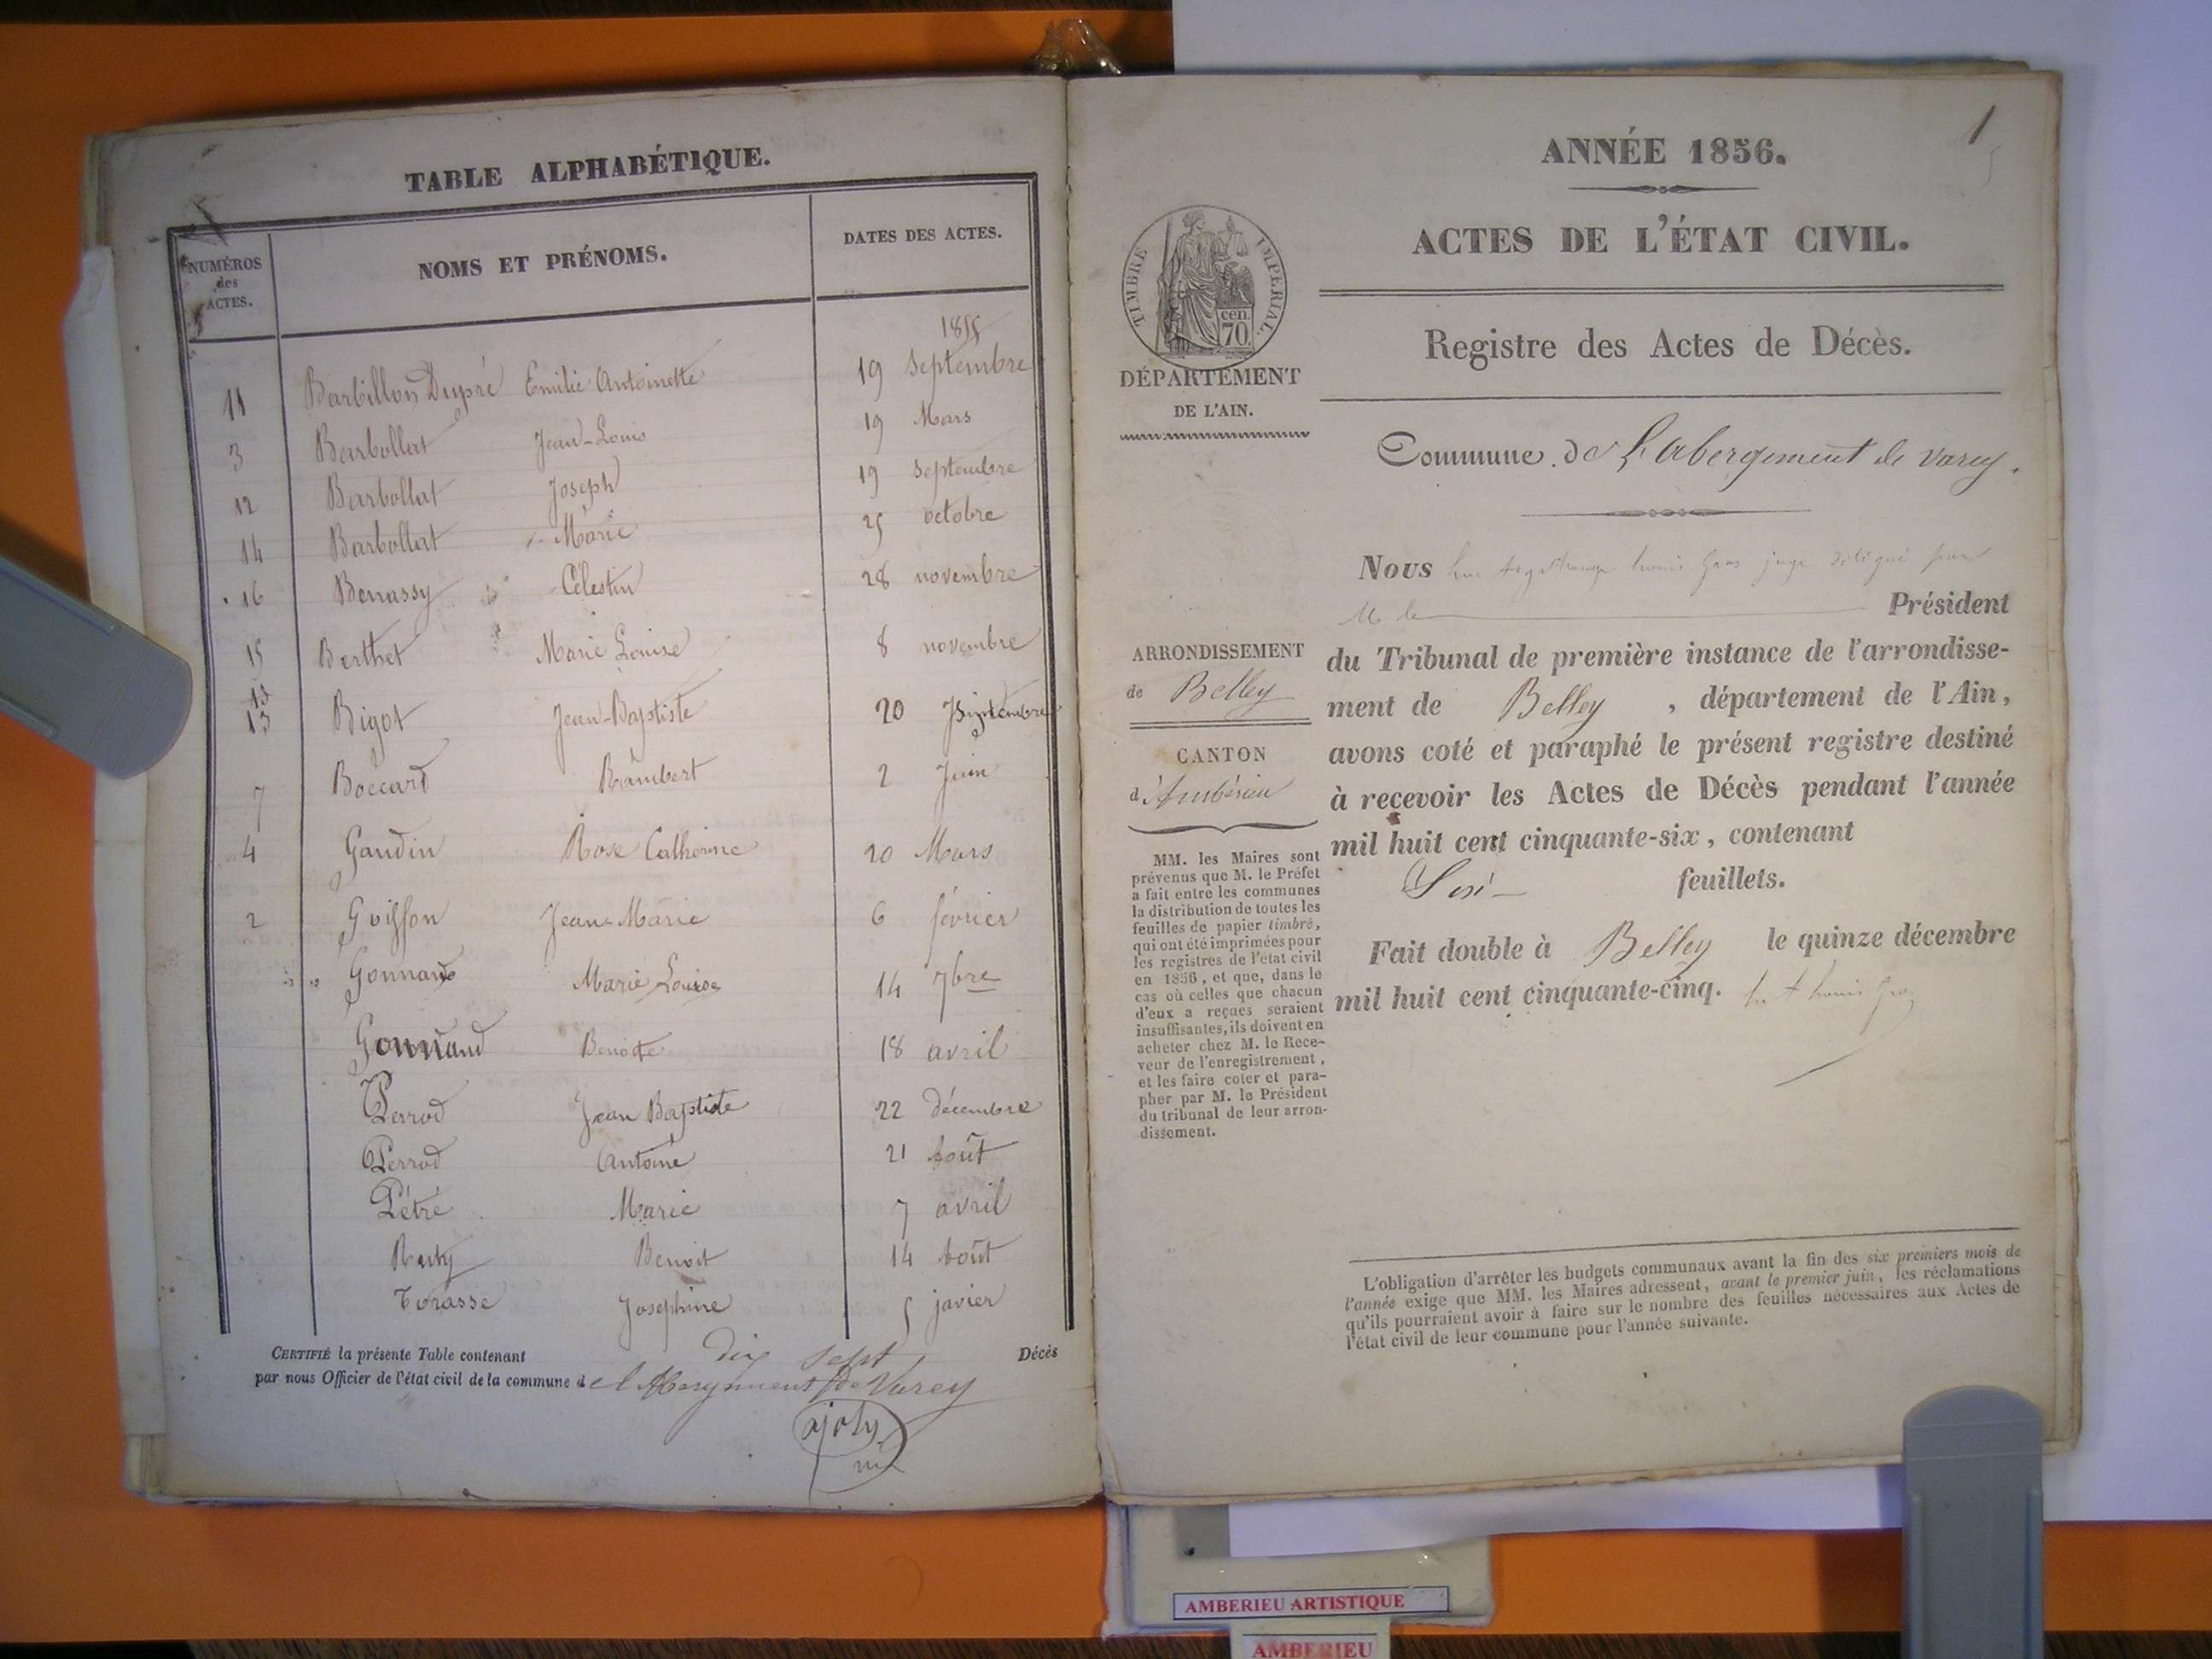 TABLE ALPHABÉTIQUE.
NUMÉROS
des
ACTES.
NOMS ET PRÉNOMS.
DATES DES ACTES.
1855
11 Barbillon Dupré Emilie Antoinette 19 Septembre
3 Barbollat Jean-Louis 19 Mars
12 Barbollat Joseph 19 Septembre
14 Barbollat Marie 25 octobre
16 Benassy Célestin 28 novembre
15 Berthet Marie Louise 8 novembre
13
13 Bigot Jean-Baptiste 20 Septembre
7 Boccard Rambert 2 Juin
4 Gaudin Rose Catherine 20 Mars
2 Goiffon Jean-Marie 6 février
Gonnand Marie Louise 14 7bre
Gonnand Benoite 18 avril
Perrod Jean Baptiste 22 décembre
Perrod Antoine 21 août
Pétré Marie 7 avril
Benoit 14 août
Torasse Josephine 5 javier
CERTIFIÉ la présente Table contenant dix sept Décès
par nous Officier de l'état civil de la commune de l'Abergement de Varey
ajoly
1
ANNÉE 1856.
ACTES DE L'ÉTAT CIVIL.
TIMBRE IMPÉRIAL.
cen.
70.
DÉPARTEMENT
DE L'AIN.
Registre des Actes de Décès.
Commune de L'abergement de varey.
Nous Louis Gros juge délégué pour
M. le Président
du Tribunal de première instance de l'arrondisse-
ment de Belley, département de l'Ain,
avons coté et paraphé le présent registre destiné
à recevoir les Actes de Décès pendant l'année
mil huit cent cinquante-six, contenant
feuillets.
Fait double à Belley le quinze décembre
mil huit cent cinquante-cinq. Louis Gros
ARRONDISSEMENT
de Belley
CANTON
d'Ambérieu
MM. les Maires sont
prévenus que M. le Préfet
a fait entre les communes
la distribution de toutes les
feuilles de papier timbré,
qui ont été imprimées pour
les registres de l'état civil
en 1856, et que, dans le
cas où celles que chacun
d'eux a reçues seraient
insuffisantes, ils doivent en
acheter chez M. le Rece-
veur de l'enregistrement,
et les faire coter et para-
pher par M. le Président
du tribunal de leur arron-
dissement.
L'obligation d'arrêter les budgets communaux avant la fin des six premiers mois de
l'année exige que MM. les Maires adressent, avant le premier juin, les réclamations
qu'ils pourraient avoir à faire sur le nombre des feuilles nécessaires aux Actes de
l'état civil de leur commune pour l'année suivante.
AMBERIEU ARTISTIQUE
AMBERIEU